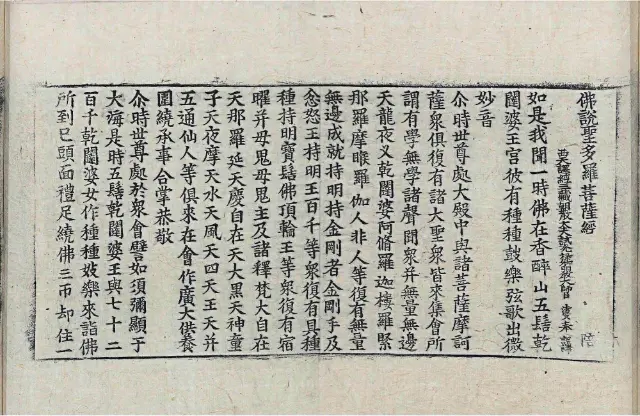 佛說聖多羅菩薩經
如是我聞一時佛在香醉山五髻乾
闥婆王宮彼有種種鼓樂弦歌出微
妙音
尒時世尊處大殿中與諸菩薩摩訶
薩衆俱復有諸大聖衆皆來集會所
謂有學無學諸聲聞衆并無量無邊
天龍夜叉乾闥婆阿脩羅迦樓羅緊
那羅摩睺羅伽人非人等復有無量
無邊成就持明持金剛者金剛手及
忿怒王持明王百千等衆復有具種
種持明寶髻佛頂輪王等衆復有宿
曜并母鬼母鬼主及諸釋梵大自在
天那羅延天慶自在天大黑天神童
子天夜摩天水天風天四天王天并
五通仙人等俱來在會作廣大供養
圍繞承事合掌恭敬
尒時世尊處於衆會譬如須彌顯于
大海是時五髻乾闥婆王與七十二
百千乾闥婆女作種種妓樂來詣佛
所到已頭面禮足繞佛三帀却住一